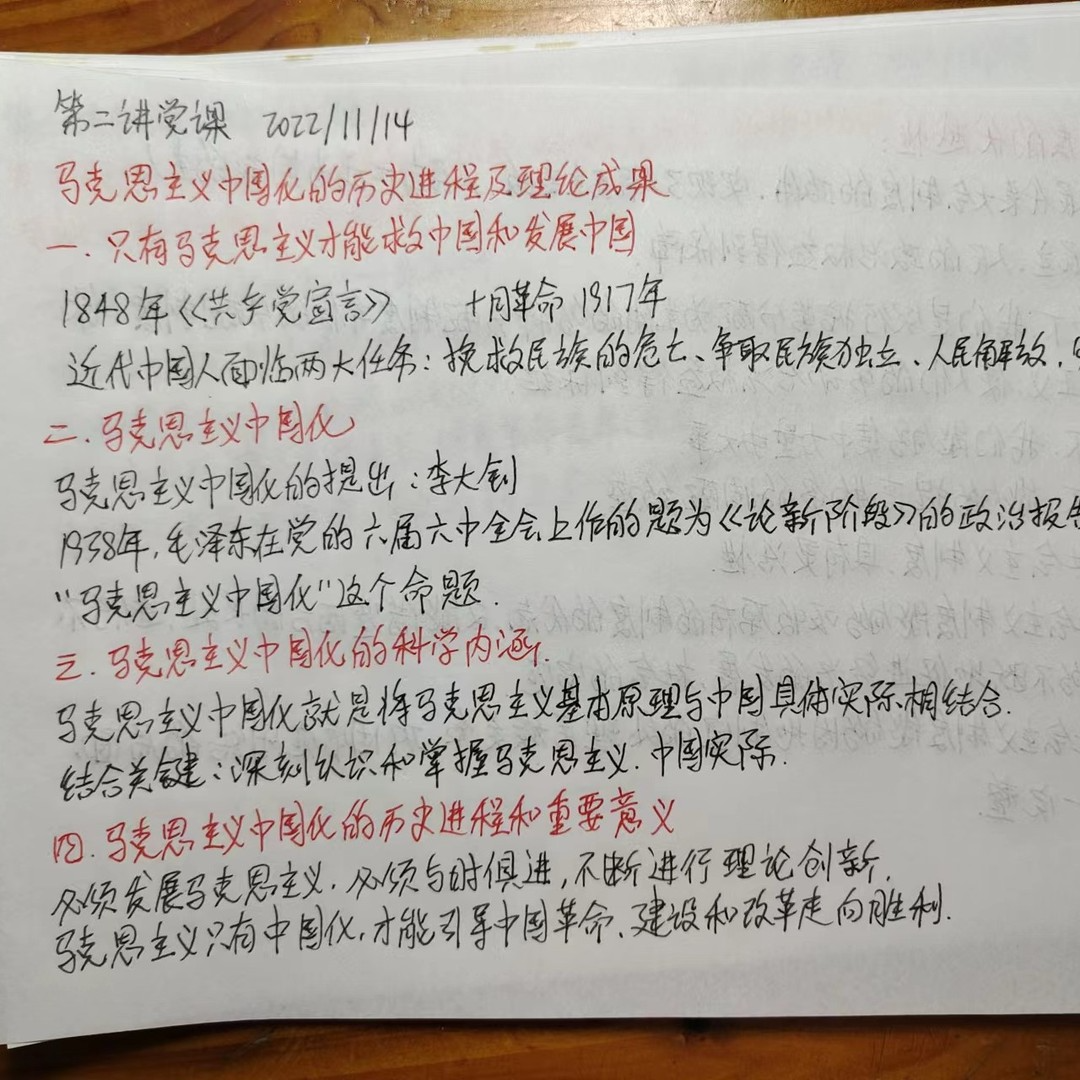 第二讲党课 2022/11/14
马克思主义中国化的历史进程及理论成果
一.只有马克思主义才能救中国和发展中国
1848年《共产党宣言》 十月革命 1917年
近代中国人面临两大任务:挽救民族的危亡、争取民族独立、人民解放,
二.马克思主义中国化
马克思主义中国化的提出:李大钊
1938年,毛泽东在党的六届六中全会上作的题为《论新阶段》的政治报告
“马克思主义中国化”这个命题.
三.马克思主义中国化的科学内涵.
马克思主义中国化就是将马克思主义基本原理与中国具体实际相结合.
结合关键:深刻认识和掌握马克思主义.中国实际.
四.马克思主义中国化的历史进程和重要意义
必须发展马克思主义.必须与时俱进,不断进行理论创新.
马克思主义只有中国化,才能引导中国革命、建设和改革走向胜利.